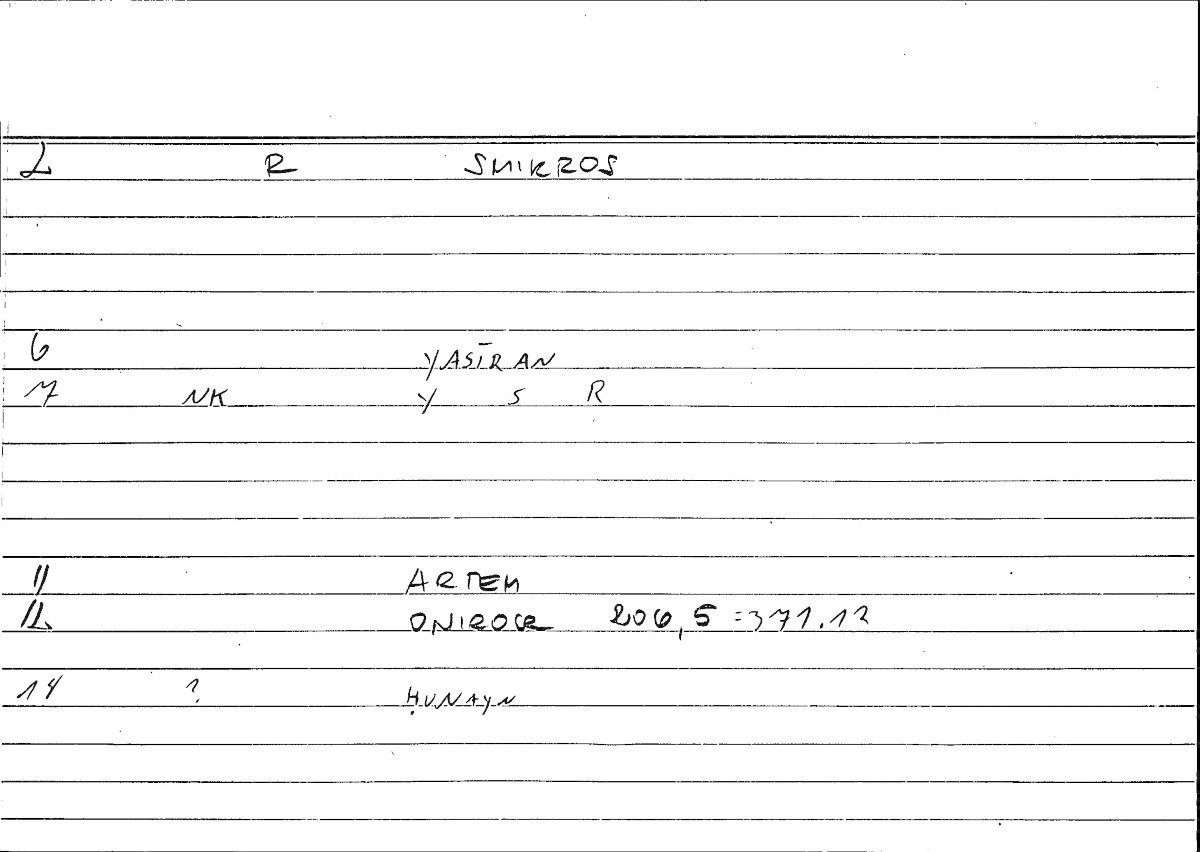 2 R SMIKROS
6 YASĪRAN
7 NK Y S R
11 ARTEM
12 ONIROCR 206,5 =371.12
14 ? ḤUNAYN